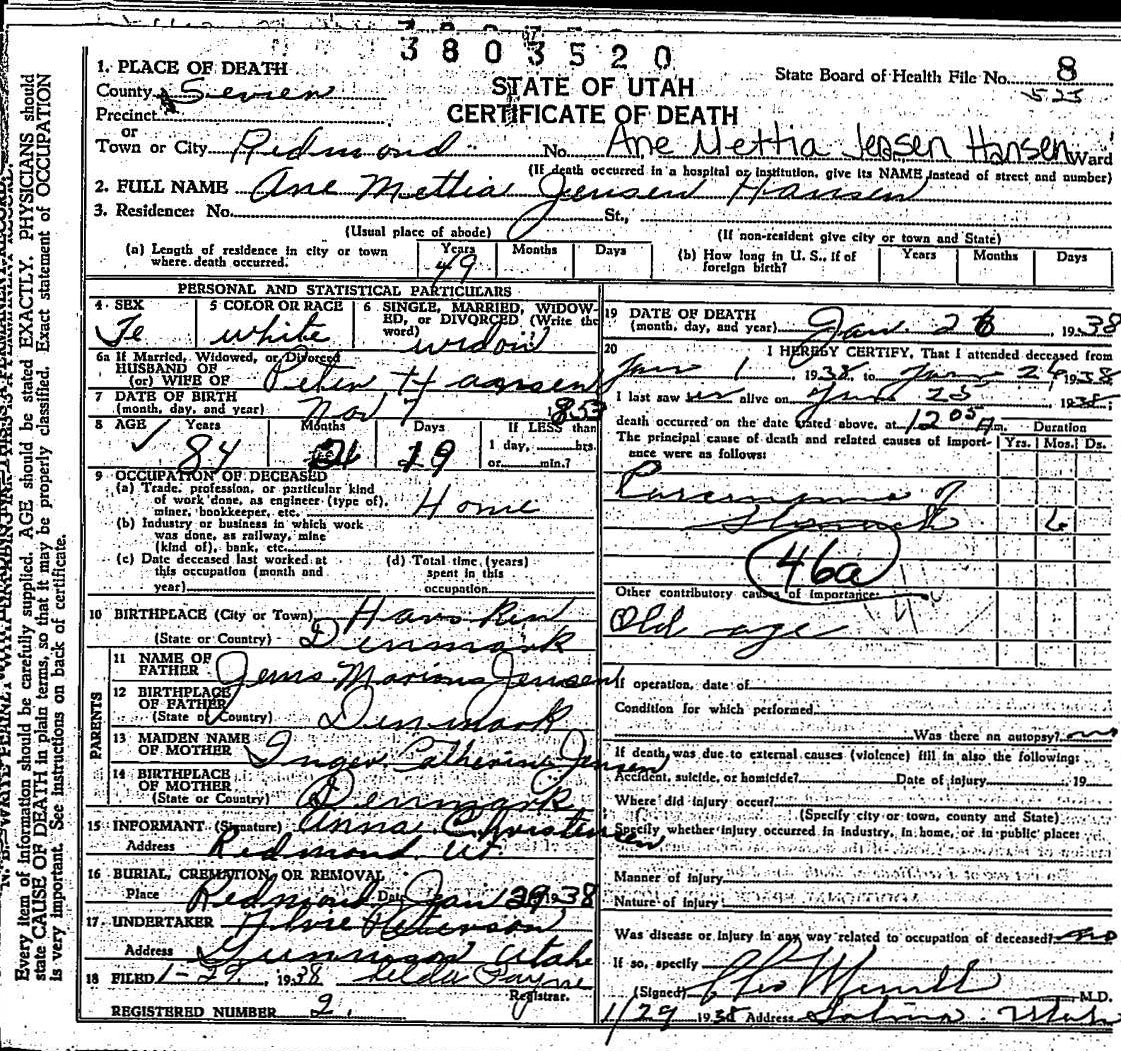 3803520
1. PLACE OF DEATH
STATE OF UTAH
State Board of Health File No. 8
County Sevier
525
Precinct
CERTIFICATE OF DEATH
or
Town or City Redmond No. Ane Mettia Jensen Hansen Ward
(If death occurred in a hospital or institution, give its NAME instead of street and number)
2. FULL NAME Ane Mettia Jensen Hansen
3. Residence: No. St.,
(Usual place of abode) (If non-resident give city or town and State)
(a) Length of residence in city or town where death occurred. Years 49 Months Days
(b) How long in U. S., if of foreign birth? Years Months Days
PERSONAL AND STATISTICAL PARTICULARS
4 SEX Fe
5 COLOR OR RACE white
6 SINGLE, MARRIED, WIDOWED, OR DIVORCED (Write the word) widow
6a If Married, Widowed, or Divorced
HUSBAND OF
(or) WIFE OF Peter Hansen
7 DATE OF BIRTH
(month, day, and year) Nov 7 1853
8 AGE Years 84 Months Days 19 If LESS than
1 day, hrs.
or min.?
9 OCCUPATION OF DECEASED
(a) Trade, profession, or particular kind
of work done, as engineer (type of),
miner, bookkeeper, etc. Home
(b) Industry or business in which work
was done, as railway, mine
(kind of), bank, etc.
(c) Date deceased last worked at
this occupation (month and
year)
(d) Total time (years)
spent in this
occupation
10 BIRTHPLACE (City or Town)
(State or Country) Denmark
PARENTS
11 NAME OF
FATHER Jens Jensen
12 BIRTHPLACE
OF FATHER
(State or Country) Denmark
13 MAIDEN NAME
OF MOTHER Inger Catherine Jensen
14 BIRTHPLACE
OF MOTHER
(State or Country) Denmark
15 INFORMANT (Signature) Anna Christensen
Address Redmond Ut.
16 BURIAL, CREMATION, OR REMOVAL
Place Redmond Date Jan 29 1938
17 UNDERTAKER Peterson
Address Gunnison Utah
18 FILED 1-29, 1938 Zelda Payne
Registrar.
REGISTERED NUMBER 2.
19 DATE OF DEATH
(month, day, and year) Jan 26, 1938
20 I HEREBY CERTIFY, That I attended deceased from
Jan 1, 1938, to 1938
I last saw her alive on 25 1938;
death occurred on the date stated above, at 12 05 Am.
The principal cause of death and related causes of importance were as follows:
Duration
Yrs. Mos. Ds.
Carcinoma of
Stomach 6
46a
Other contributory causes of importance:
Old age
If operation, date of
Condition for which performed
Was there an autopsy? no
If death was due to external causes (violence) fill in also the following:
Accident, suicide, or homicide? Date of injury 19
Where did injury occur?
(Specify city or town, county and State)
Specify whether injury occurred in industry, in home, or in public place:
Manner of injury
Nature of injury
Was disease or injury in any way related to occupation of deceased? no
If so, specify
(Signed) Merrill M.D.
1/29 1938 Address Salina Utah
Every item of information should be carefully supplied. AGE should be stated EXACTLY. PHYSICIANS should
state CAUSE OF DEATH in plain terms, so that it may be properly classified. Exact statement of OCCUPATION
is very important. See instructions on back of certificate.